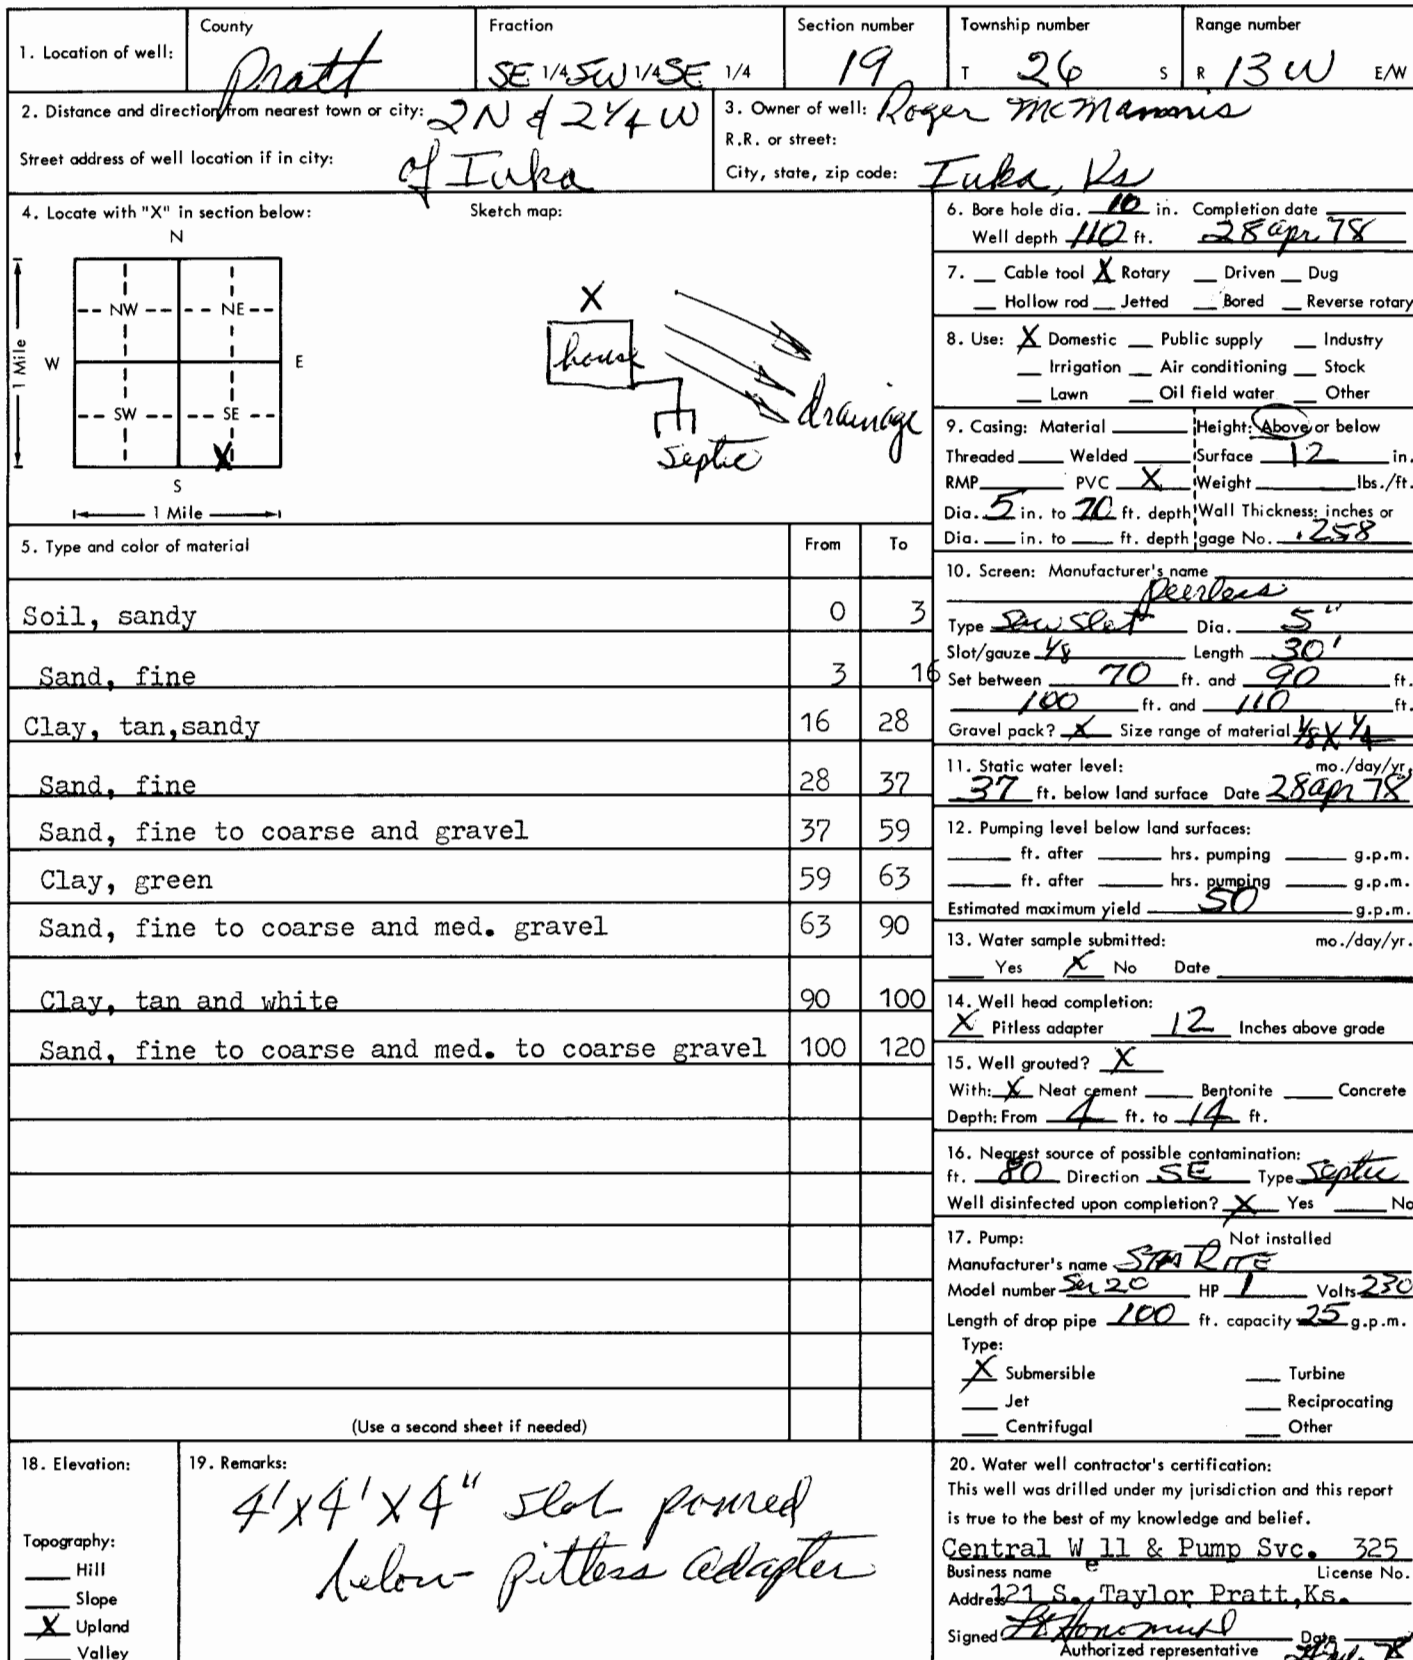 County Fraction Section number Township number Range number
1. Location of well: Pratt SE 1/4 SW 1/4 SE 1/4 19 T 26 S R 13 W E/W
2. Distance and direction from nearest town or city: 2N & 2 1/4 W
Street address of well location if in city: of Iuka
3. Owner of well: Roger McMannis
R.R. or street:
City, state, zip code: Iuka, Ks
4. Locate with "X" in section below: Sketch map:
N
NW NE
W E
1 Mile
SW SE
X
S
1 Mile
X
house
drainage
Septic
5. Type and color of material From To
Soil, sandy 0 3
Sand, fine 3 16
Clay, tan,sandy 16 28
Sand, fine 28 37
Sand, fine to coarse and gravel 37 59
Clay, green 59 63
Sand, fine to coarse and med. gravel 63 90
Clay, tan and white 90 100
Sand, fine to coarse and med. to coarse gravel 100 120
(Use a second sheet if needed)
6. Bore hole dia. 10 in. Completion date
Well depth 110 ft. 28 apr 78
7. Cable tool X Rotary Driven Dug
Hollow rod Jetted Bored Reverse rotary
8. Use: X Domestic Public supply Industry
Irrigation Air conditioning Stock
Lawn Oil field water Other
9. Casing: Material Height: Above or below
Threaded Welded Surface 12 in.
RMP PVC X Weight lbs./ft.
Dia. 5 in. to 70 ft. depth Wall Thickness: inches or
Dia. in. to ft. depth gage No. .258
10. Screen: Manufacturer's name
Peerless
Type Saw Slot Dia. 5"
Slot/gauze 1/8 Length 30'
Set between 70 ft. and 90 ft.
100 ft. and 110 ft.
Gravel pack? X Size range of material 1/8 X 1/4
11. Static water level: mo./day/yr.
37 ft. below land surface Date 28 apr 78
12. Pumping level below land surfaces:
ft. after hrs. pumping g.p.m.
ft. after hrs. pumping g.p.m.
Estimated maximum yield 50 g.p.m.
13. Water sample submitted: mo./day/yr.
Yes X No Date
14. Well head completion:
X Pitless adapter 12 Inches above grade
15. Well grouted? X
With: X Neat cement Bentonite Concrete
Depth: From 4 ft. to 14 ft.
16. Nearest source of possible contamination:
ft. 80 Direction SE Type Septic
Well disinfected upon completion? X Yes No
17. Pump: Not installed
Manufacturer's name STA RITE
Model number 20 HP 1 Volts 230
Length of drop pipe 100 ft. capacity 25 g.p.m.
Type:
X Submersible Turbine
Jet Reciprocating
Centrifugal Other
18. Elevation:
Topography:
Hill
Slope
X Upland
Valley
19. Remarks:
4' X 4' X 4" slab poured
below pitless adapter
20. Water well contractor's certification:
This well was drilled under my jurisdiction and this report
is true to the best of my knowledge and belief.
Central Well & Pump Svc. 325
Business name License No.
Address 121 S. Taylor Pratt,Ks.
Signed Date
Authorized representative